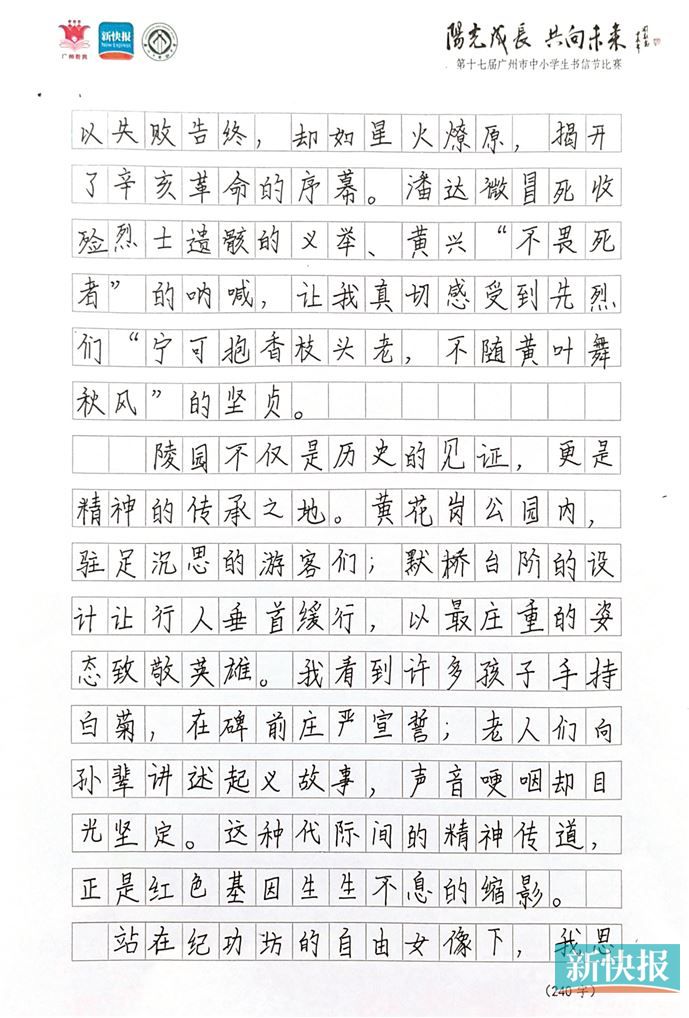 广州教育
新快报
New Express
陽光成長 共向未来
第十七届广州市中小学生书信节比赛
以失败告终，却如星火燎原，揭开
了辛亥革命的序幕。潘达微冒死收
殓烈士遗骸的义举、黄兴“不畏死
者”的呐喊，让我真切感受到先烈
们“宁可抱香枝头老，不随黄叶舞
秋风”的坚贞。
陵园不仅是历史的见证，更是
精神的传承之地。黄花岗公园内，
驻足沉思的游客们；默桥台阶的设
计让行人垂首缓行，以最庄重的姿
态致敬英雄。我看到许多孩子手持
白菊，在碑前庄严宣誓；老人们向
孙辈讲述起义故事，声音哽咽却目
光坚定。这种代际间的精神传道，
正是红色基因生生不息的缩影。
站在纪功坊的自由女像下，我思
新快报
（240字）